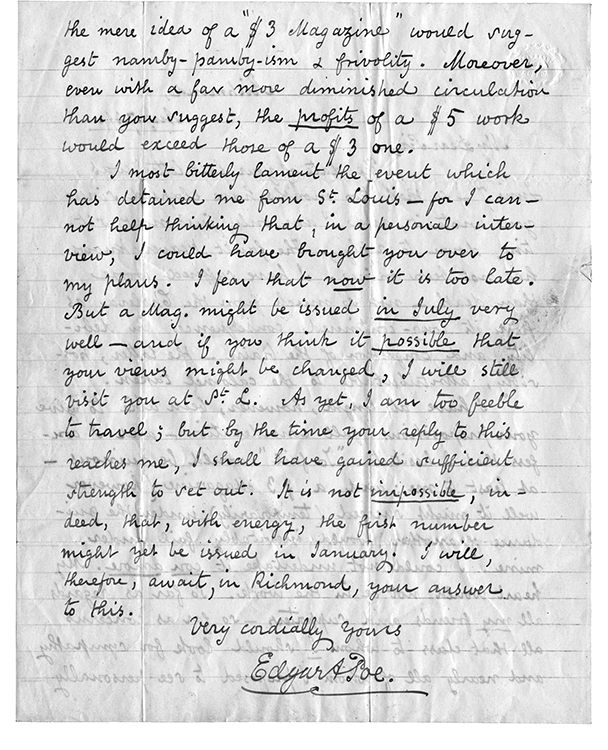 the mere idea of a "$3 Magazine" would sug-
gest namby-pamby-ism & frivolity. Moreover,
even with a far more diminished circulation
than you suggest, the profits of a $5 work
would exceed those of a $3 one.
I most bitterly lament the event which
has detained me from St. Louis — for I can-
not help thinking that, in a personal inter-
view, I could have brought you over to
my plans. I fear that now it is too late.
But a Mag. might be issued in July very
well — and if you think it possible that
your views might be changed, I will still
visit you at St. L. As yet, I am too feeble
to travel; but by the time your reply to this
reaches me, I shall have gained sufficient
strength to set out. It is not impossible, in-
deed, that, with energy, the first number
might yet be issued in January. I will,
therefore, await, in Richmond, your answer
to this.
Very cordially yours
Edgar A Poe.